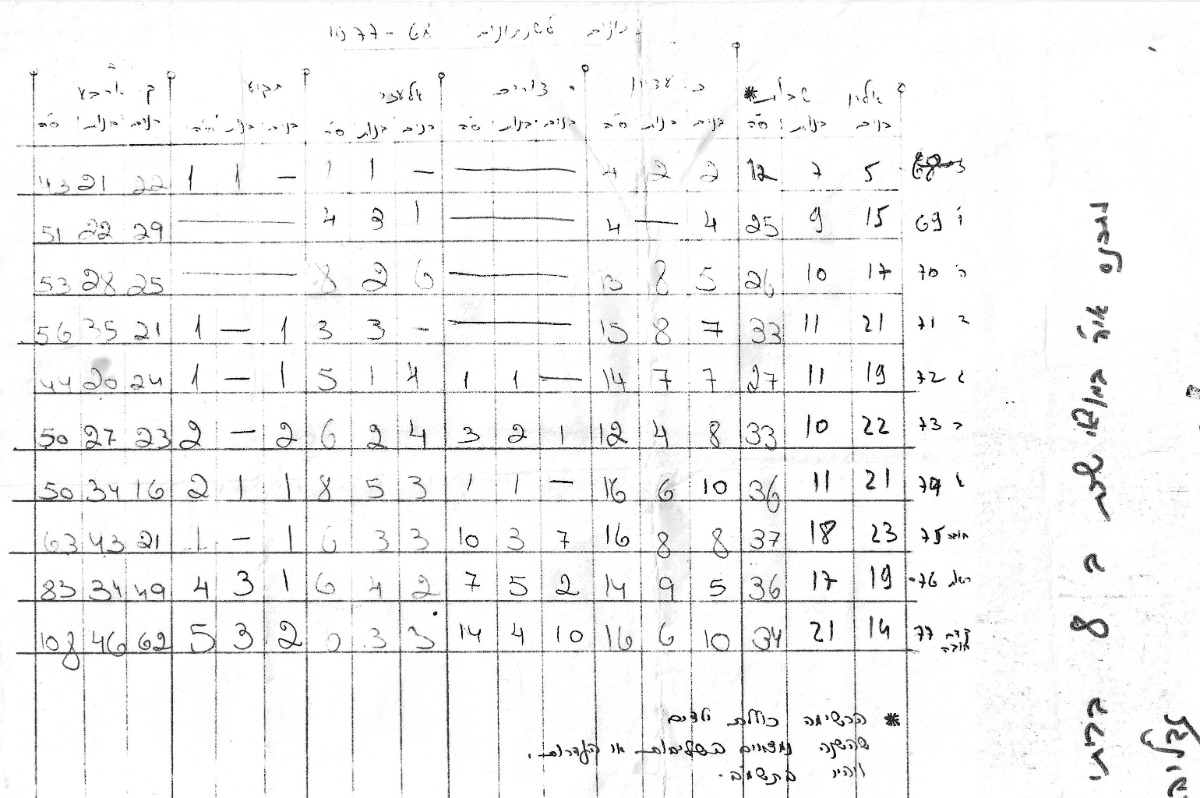 נתונים לשנתונים
אלון שבות* כ. עציון צורים אלעזר תקוע ק. ארבע
בנים בנות ס"ה בנים בנות ס"ה בנים בנות ס"ה בנים בנות ס"ה בנים בנות ס"ה בנים בנות ס"ה
5 7 12 2 2 4 — - 1 1 - 1 1 22 21 43
ו' 69 15 9 25 4 — 4 — 1 3 4 — 29 22 51
ה' 70 17 10 26 5 8 13 — 6 2 8 — 25 28 53
ד 71 21 11 33 7 8 15 — - 3 3 1 - 1 21 35 56
ג 72 19 11 27 7 7 14 - 1 1 4 1 5 1 - 1 24 20 44
ב 73 22 10 33 8 4 12 1 2 3 4 2 6 2 - 2 23 27 50
א 74 21 11 36 10 6 16 - 1 1 3 5 8 1 1 2 16 34 50
חובה 75 23 18 37 8 8 16 7 3 10 3 3 6 1 - 1 21 43 63
76 19 17 36 5 9 14 2 5 7 2 4 6 1 3 4 49 34 83
קדם חובה 77 14 21 34 10 6 16 10 4 14 3 3 2 3 5 62 46 108
* הרשימה כוללת ילדים
שהשנה נמצאים בשליחות או
ויהיו בתשמ"ב.
8 בתי